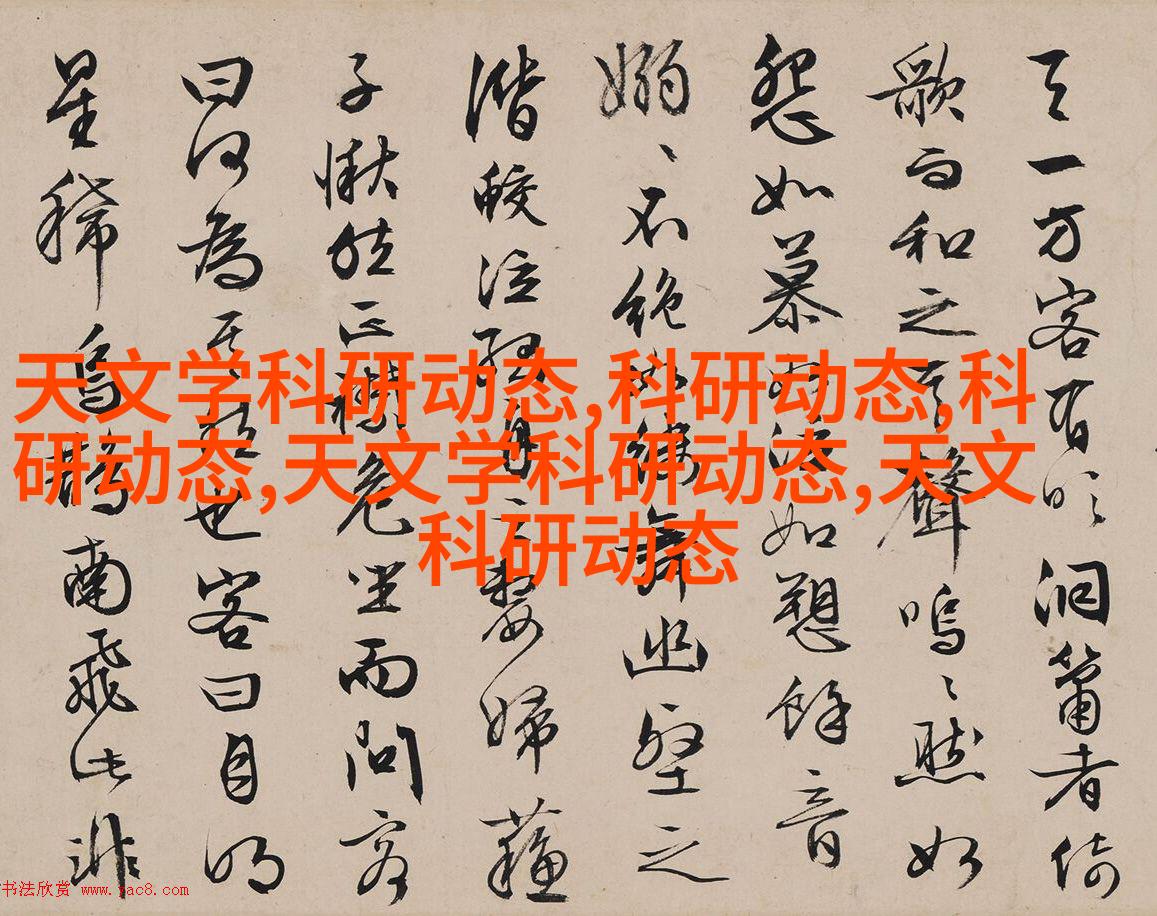 天一方客有吹洞簫者倚
歌而和之其聲嗚〻然如
怨如慕如泣如愬餘音
嫋〻不絶如縷舞幽壑之
潛蛟泣孤舟之嫠婦蘇
子愀然正襟危坐而問客
曰何為其然也客曰月明
星稀烏鵲南飛此非
天文学科研动态,科研动态,科
研动态,天文学科研动态,天文
科研动态
书法欣赏 www.yac8.com